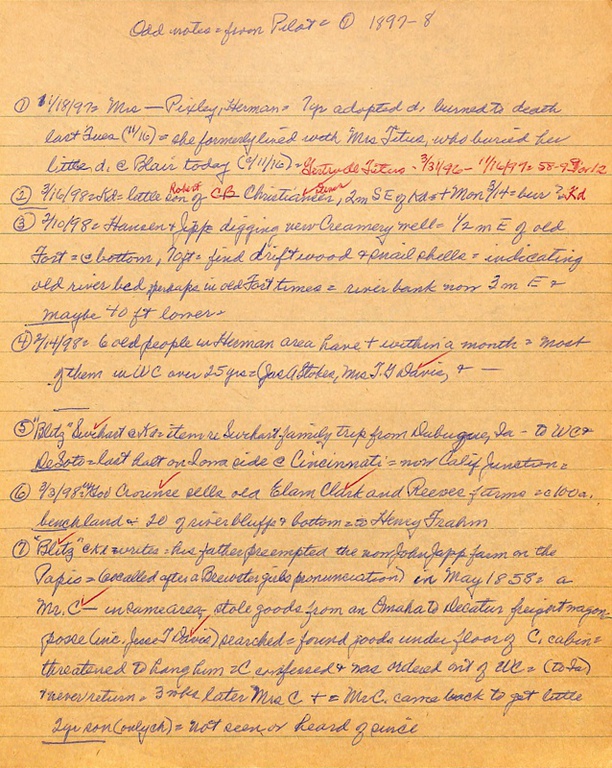 Odd notes = from Pilot = ① 1897-8
① 11/18/97 = Mrs — Pixley, Herman = 7yr adopted d. burned to death
last Tues (11/16) = she formerly lived with Mrs Titus, who buried her
little d. @ Blair today (9/11/16) = Gertrude Titus - 3/31/96 - 11/16/97 = 58-9
② 3/16/98 = Kd = little son of Robert CB Christianer, 2m SE of Kd = + Mon 3/14 = bur Kd
③ 2/10/98 = Hansen & Japp digging new Creamery well = 1/2 m E of old
Fort = @ bottom, 70ft = find driftwood & snail shells = indicating
old river bed perhaps in old Fort times = river bank now 3 m E &
maybe 40 ft lower =
④ 2/14/98 = 6 old people in Herman area have + within a month = most
of them in WC over 25 yrs = (Jas A Stokes, Mrs T.G Davis, & —
—
⑤ "Blitz" Swihart @ Kd = item re Swihart family trip from Dubuque, Ia - to WC &
DeSoto = last halt on Iowa side @ Cincinnati = now Calif Junction =
⑥ 3/3/98 = Gov Crounse sells old Elam Clark and Reeves farms = c 100a.
benchland & 20 of river bluff & bottom = to Henry Frahm
⑦ "Blitz" @ Kd = writes = his father preempted the now John Japp farm on the
Papio = (so called after a Brewster girls pronunciation) in May 1858 = a
Mr. C — in same area, stole goods from an Omaha to Decatur freight wagon =
posse (inc. Jesse T Davis) searched = found goods under floor of C. cabin =
threatened to hang him = C confessed & was ordered out of WC = (to Ia)
& never return = 3 wks later Mrs C + = Mr C. came back to get little
2yr son (only ch) = not seen or heard of since